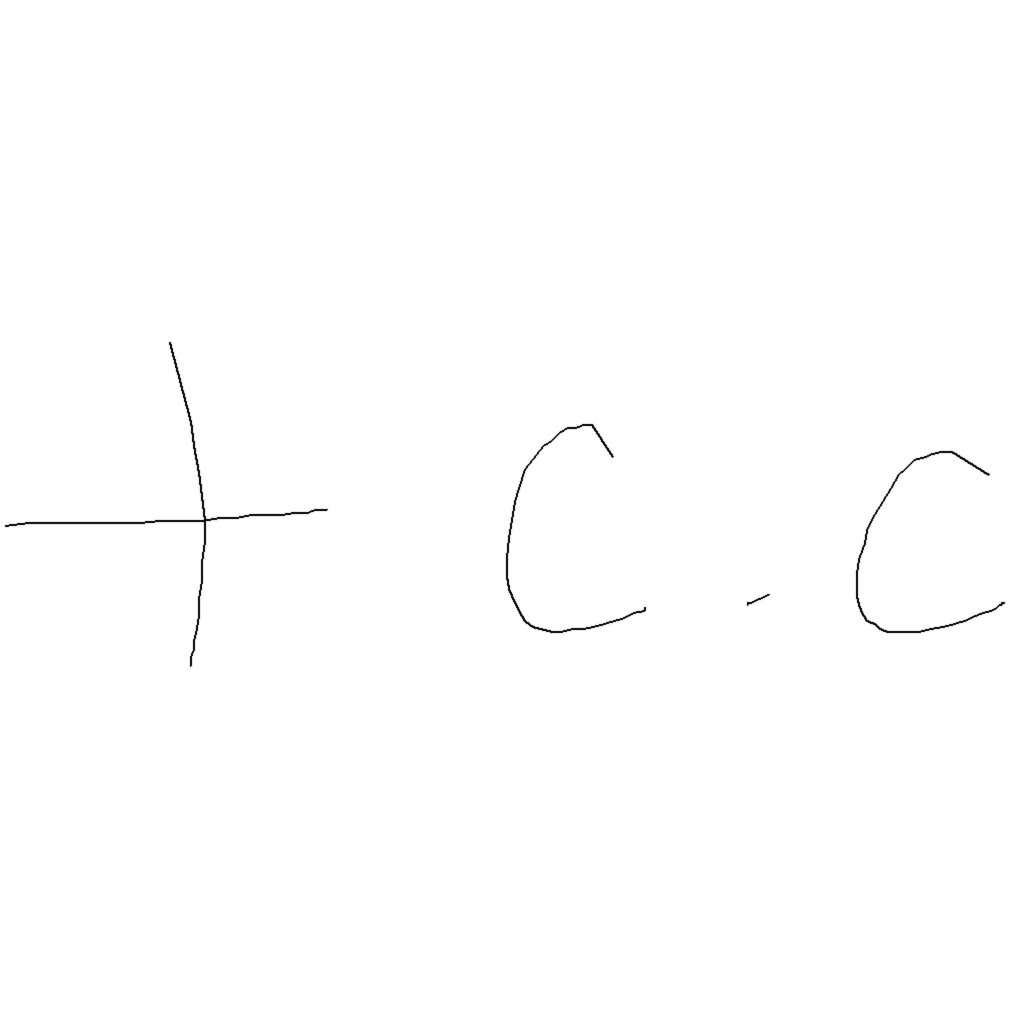 + c.c